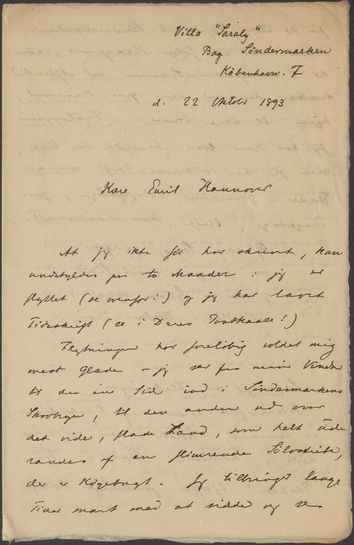 Villa "Taraly"
Bag Söndermarken
København. F
d. 22 Oktobr 1893
Kære Emil Hannover
At jeg ikke før har skrevet, kan
undskyldes paa to Maader: jeg er
flyttet (se ovenfor!) og jeg har læst
Tidsskrift (se i Deres Brevkasse!)
Flytningen har foreløbig voldet mig
mest Glæde – jeg ser fra mine Vinduer
til den ene Side ind i Søndermarkens
Skovtyge, til den anden ud over
det vide, flade Land, som helt ude
randes af en skinnende Sølvstribe,
der er Kögebugt. Jeg tilbringer lange
Tider mest med at sidde og se